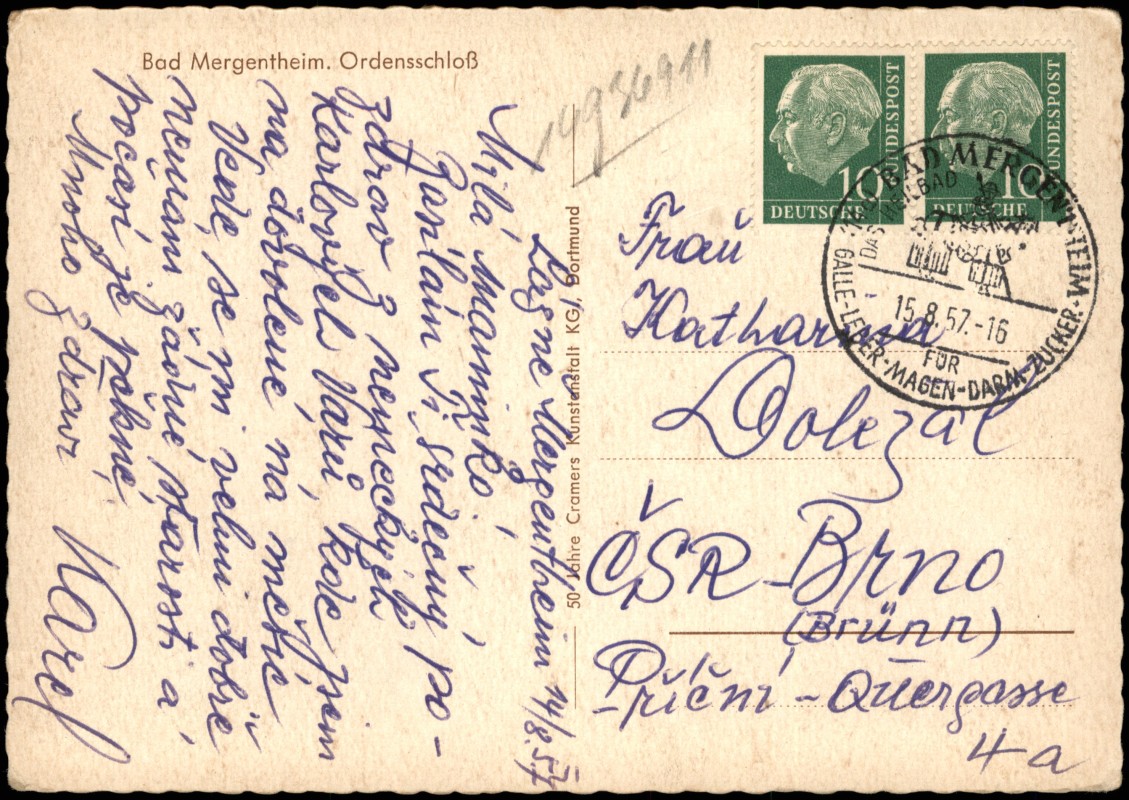 Bad Mergentheim. Ordensschloß
1993 6911
Lázně Mergentheim 14/8.57
Milá Maminko,
Posílám Ti srdečný po-
zdrav z německých
Karlových Varů, kde jsem
na dovolené, na měsíc
Vede se mi velmi dobře
nemám žádné starosti a
počasí je pěkné.
Mnoho zdraví
Karel
50 Jahre Cramers Kunstanstalt KG, Dortmund
10
DEUTSCHE
BUNDESPOST
10
DEUTSCHE
BUNDESPOST
BAD MERGENTHEIM
DAS HEILBAD
15.8.57.-16
FÜR
GALLE-LEBER-MAGEN-DARM-ZUCKER
Frau
Katharina
Dolezal
ČSR-Brno
(Brünn)
Příční - Quergasse
4a